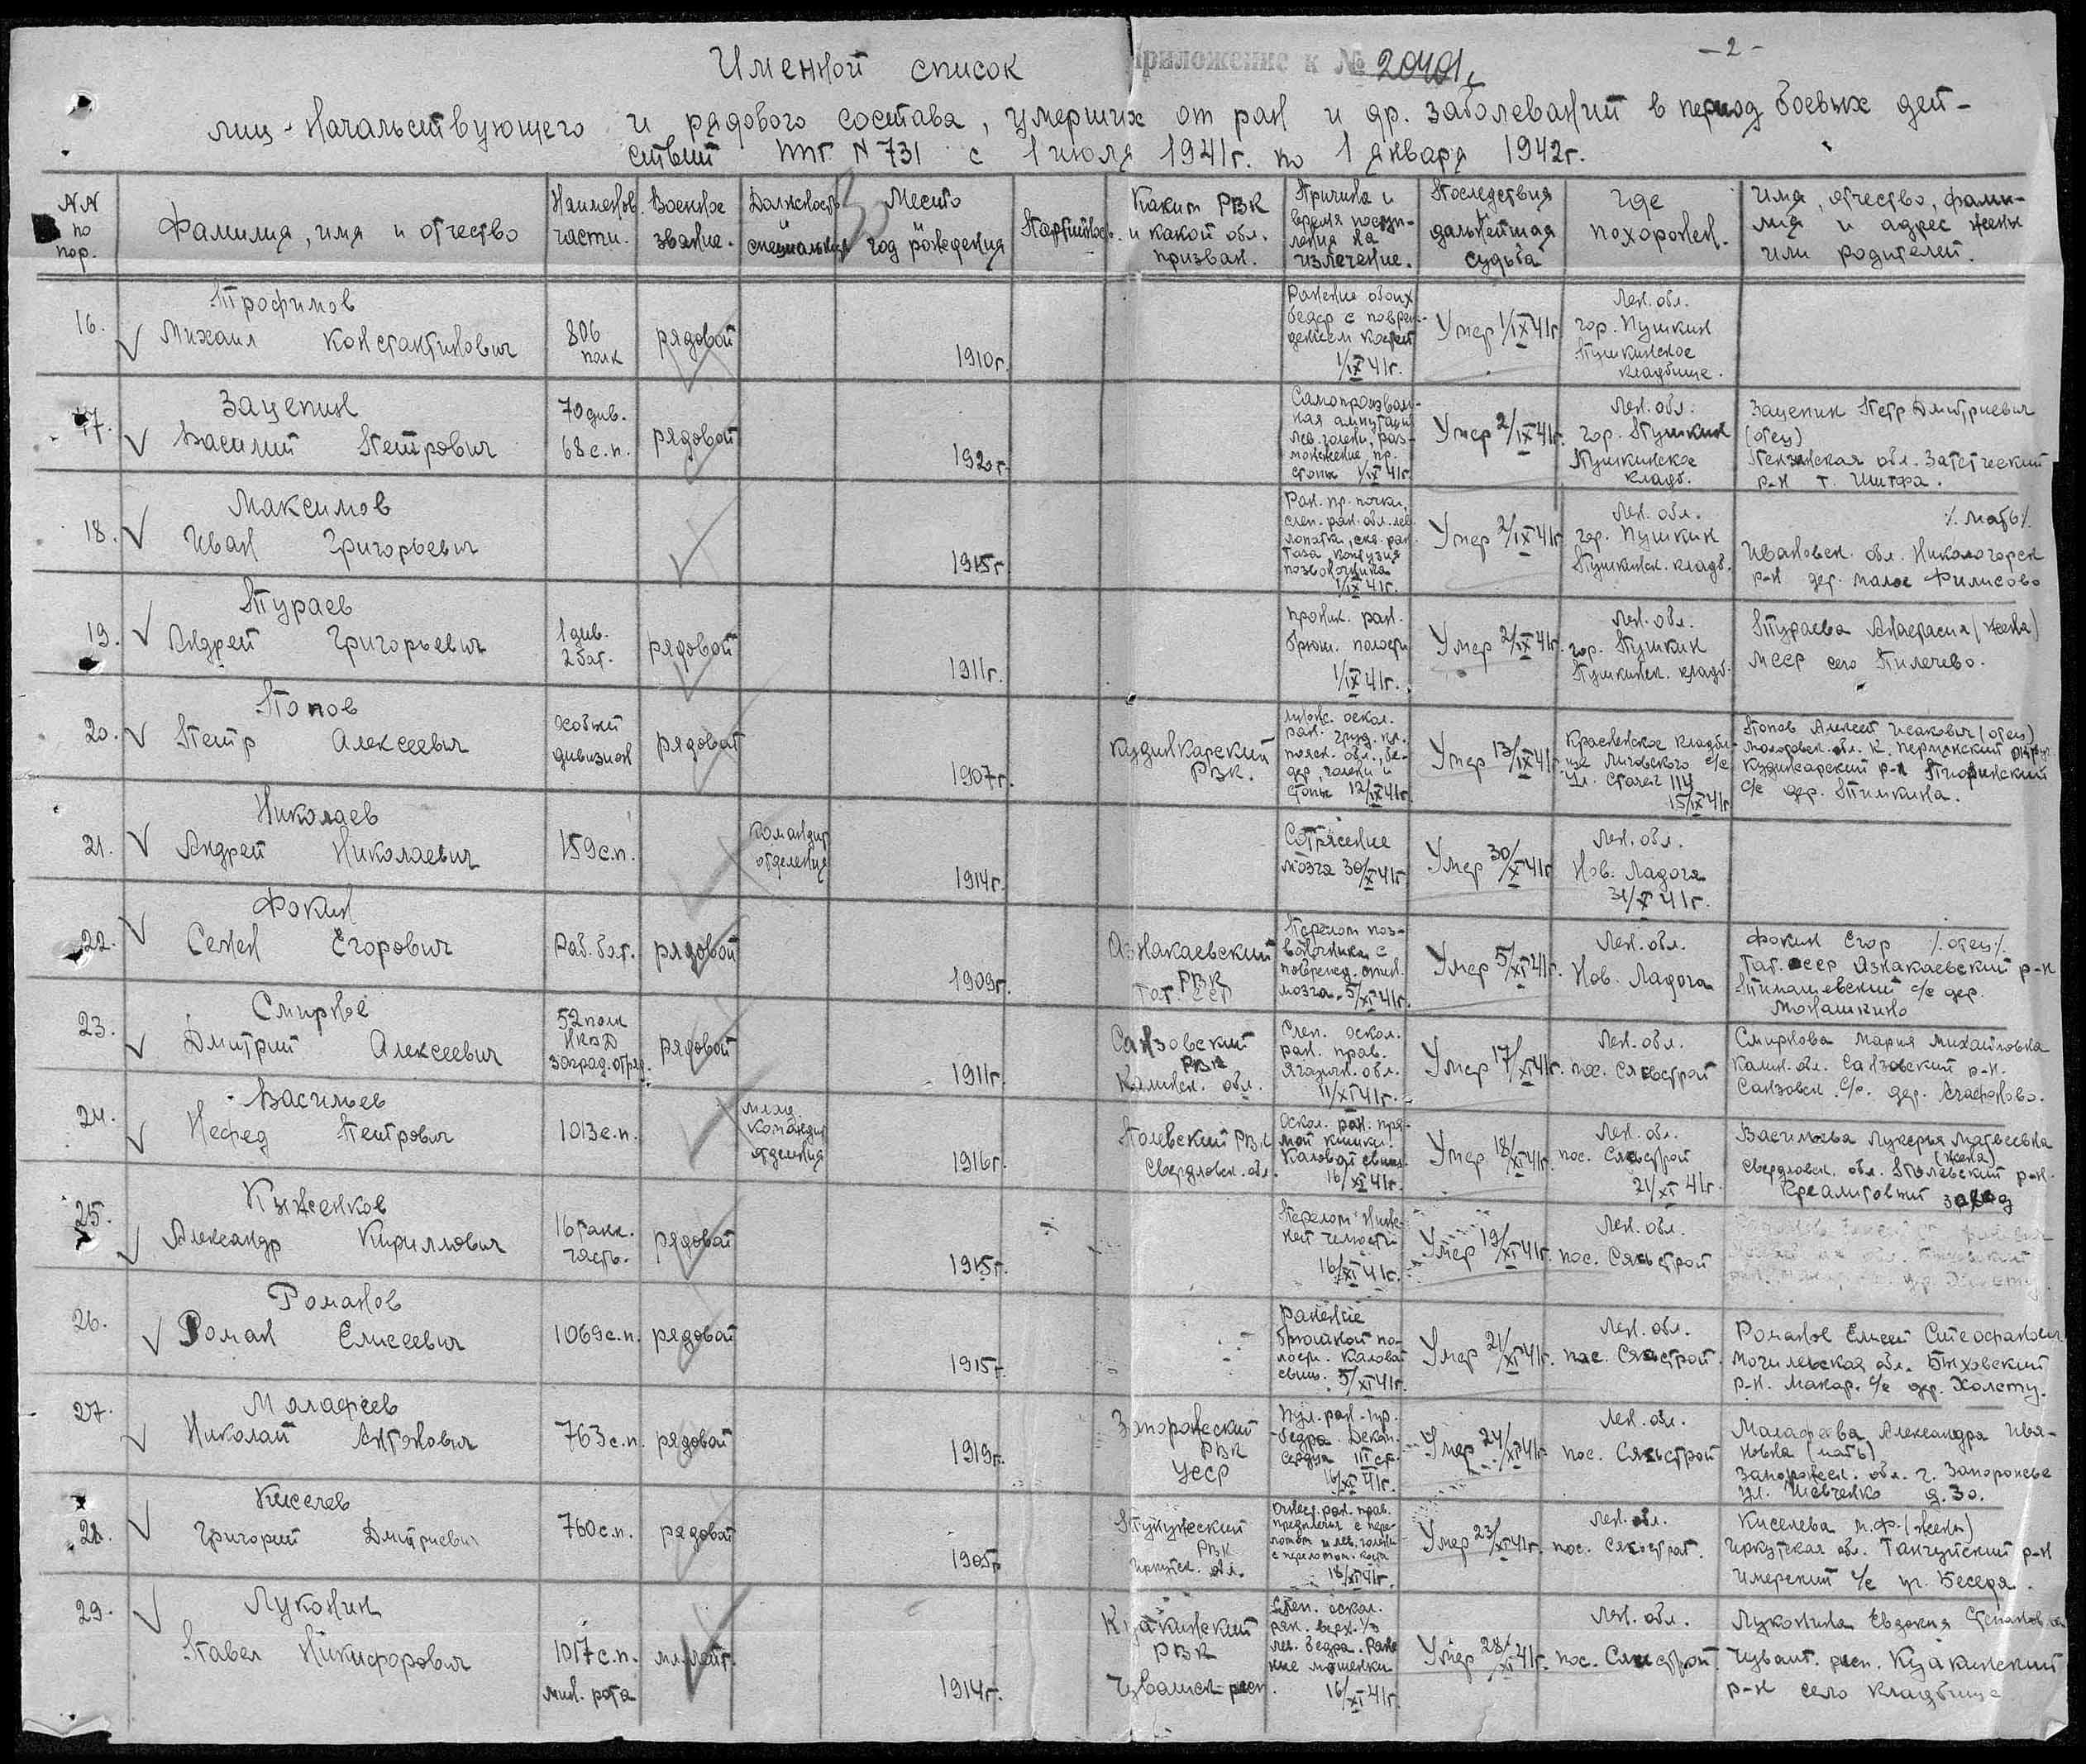 Приложение к № 20401с
- 2 -
Именной список
лиц начальствующего и рядового состава, умерших от ран и др. заболеваний в период боевых дей-
ствий ппг N 731 с 1 июля 1941г. по 1 января 1942г.
NN по пор.
Фамилия, имя и отчество
Наименов. части.
Военное звание.
Должность и специальность
Место и год рождения
Партийнос.
Каким РВК и какой обл. призван.
Причина и время поступления на излечение.
Последствия дальнейшая судьба
Где похоронен.
Имя, отчество, фами-
лия и адрес жены
или родителей.
16.
Трофимов
Михаил Константинович
806 полк
рядовой
1910г.
Ранение обоих
бедер с повреж-
дением костей
1/IX 41г.
Умер 1/IX 41г.
Лен. обл.
гор. Пушкин
Пушкинское
кладбище.
17.
Зацепин
Василий Петрович
70 див.
68 с.п.
рядовой
1920г.
Самопроизволь-
ная ампутация
лев. голени, раз-
мозжение пр.
стопы 1/IX 41г.
Умер 2/IX 41г.
Лен. обл.
гор. Пушкин
Пушкинское
кладб.
Зацепин Петр Дмитриевич
(отец)
Пензенская обл.
р-н
18.
Максимов
Иван Григорьевич
1915г
Ран. пр. почки,
слеп. ран. обл. лев.
лопатки, скв. ран.
таза, контузия
позвоночника
1/IX 41г.
Умер 2/IX 41г
Лен. обл.
гор. Пушкин
Пушкинск. кладб.
/. мать /.
Ивановск. обл. Никологорск
р-н дер. Малое Филисово
19.
Пураев
Андрей Григорьевич
1 див.
2 бат.
рядовой
1911г.
проник. ран.
брюш. полости
1/IX 41г.
Умер 2/IX 41г.
Лен. обл.
гор. Пушкин
Пушкинск. кладб.
Пураева Анастасия (жена)
МССР село Пилечево.
20.
Попов
Петр Алексеевич
Особый
дивизион
рядовой
1907г.
Кудимкарский
РВК.
множ. оскол.
ран. груд. кл.
поясн. обл., бе-
дер, голени и
стопы 12/IX 41г.
Умер 13/IX 41г.
Красненское кладби-
ще Лиговского с/с
ул. Стачек 114
15/IX 41г
Попов Алексей Исакович (отец)
Молотовск. обл. К. Пермякский округ.
Кудимкарский р-н
с/с дер. Пимкина.
21.
Николаев
Андрей Николаевич
159 с.п.
командир
отделения
1914г.
Сотрясение
мозга 30/X 41г.
Умер 30/X 41г
Лен. обл.
Нов. Ладога
31/X 41г.
22.
Фокин
Семен Егорович
Раб. бат.
рядовой
1909г.
Азнакаевский
РВК
Тат. ССР
Перелом поз-
воночника с
поврежд. спин.
мозга. 5/XI 41г.
Умер 5/XI 41г.
Лен. обл.
Нов. Ладога
Фокин Егор /. отец /.
Тат. ССР Азнакаевский р-н
Тимашевский с/с дер.
Монашкино
23.
Смирнов
Дмитрий Алексеевич
52 полк
НКВД
заград. отряд.
рядовой
1911г.
Санзовский
РВК
Калинск. обл.
Слеп. оскол.
ран. прав.
ягодичн. обл.
11/XI 41г.
Умер 17/XI 41г.
Лен. обл.
пос. Сясьстрой
Смирнова Мария Михайловна
Калин. обл. Санзовский р-н.
Санзовск. с/с. дер. Агафоново.
24.
Васильев
Нефед Петрович
1013 с.п.
млад.
командир
отделения
1916г.
Полевский РВК
Свердловск. обл.
Оскол. ран. пря-
мой кишки.
Каловой свищ.
16/XI 41г.
Умер 18/XI 41г.
Лен. обл.
пос. Сясьстрой
21/XI 41г.
Васильева Лукерья Матвеевна
(жена)
Свердловск. обл. Полевский р-н.
Креалитовый завод
25.
Кыженков
Александр Кириллович
16 танк.
часть.
рядовой
1915г.
Перелом ниж-
ней челюсти
16/XI 41г.
Умер 19/XI 41г.
Лен. обл.
пос. Сясьстрой
26.
Романов
Роман Елисеевич
1069 с.п.
рядовой
1915г.
Ранение
брюшной по-
лости. Каловой
свищ. 5/XI 41г.
Умер 21/XI 41г.
Лен. обл.
пос. Сясьстрой.
Романов Елисей Стефанович
Могилевская обл. Быховский
р-н. Макар. с/с дер. Холсту.
27.
Малафеев
Николай Антонович
763 с.п.
рядовой
1919г.
Запорожский
РВК
УССР
Пул. ран. пр.
бедра. Декомп.
сердца III ст.
16/XI 41г.
Умер 24/XI 41г.
Лен. обл.
пос. Сясьстрой
Малафеева Александра Ива-
новна (мать)
Запорожск. обл. г. Запорожье
ул. Шевченко д. 30.
28.
Киселев
Григорий Дмитриевич
760 с.п.
рядовой
1905г.
РВК
Иркутск. обл.
Огнестр. ран. прав.
предплечья с пере-
ломом и лев. голени
с перелом. кости
18/XI 41г.
Умер 23/XI 41г.
Лен. обл.
пос. Сясьстрой.
Киселева М.Ф. (жена)
Иркутская обл. Тангуйский р-н
Имерский с/с уч. Беседа.
29.
Луконин
Павел Никифорович
1017 с.п.
мин. рота
мл. лейт.
1914г.
Кувакинский
РВК
Чувашск. респ.
Слеп. оскол.
ран. верх. 1/3
лев. бедра. Ране-
ние мошонки
16/XI 41г.
Умер 28/XI 41г.
Лен. обл.
пос. Сясьстрой.
Луконина Евдокия Степановна
Чуваш. респ. Кувакинский
р-н село Кладбище